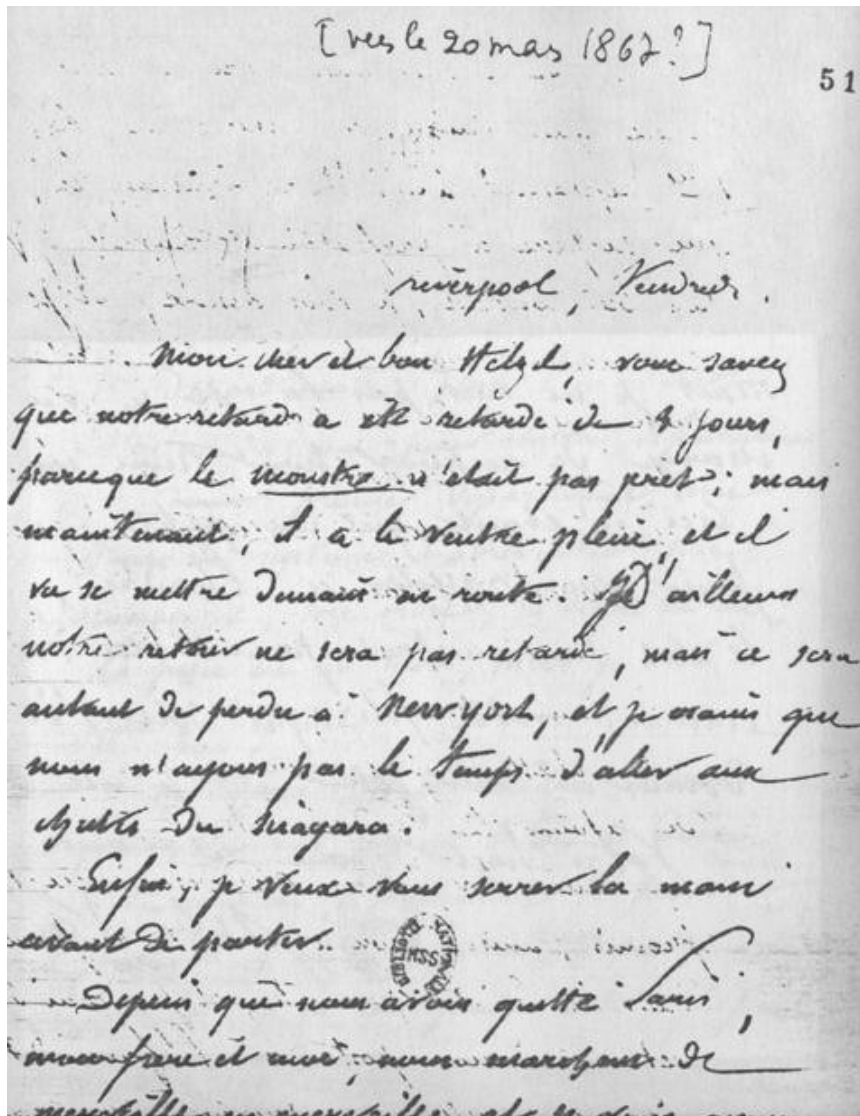 [vers le 20 mars 1867?]
51
Liverpool, Vendredi.
Mon cher et bon Hetzel, vous savez
que notre retard a été retardé de 4 jours,
parceque le monstre n'était pas prêt; mais
maintenant, il a le ventre plein, et il
va se mettre demain en route. D'ailleurs
notre retour ne sera pas retardé, mais ce sera
autant de perdu à New york, et je crains que
nous n'ayons pas le temps d'aller aux
chutes du Niagara.
Enfin, je veux vous serrer la main
avant de partir.
BIBLIOTH NATIONALE MSS
Depuis que nous avons quitté Paris,
mon frère et moi, nous marchons de
merveille en merveille, et je